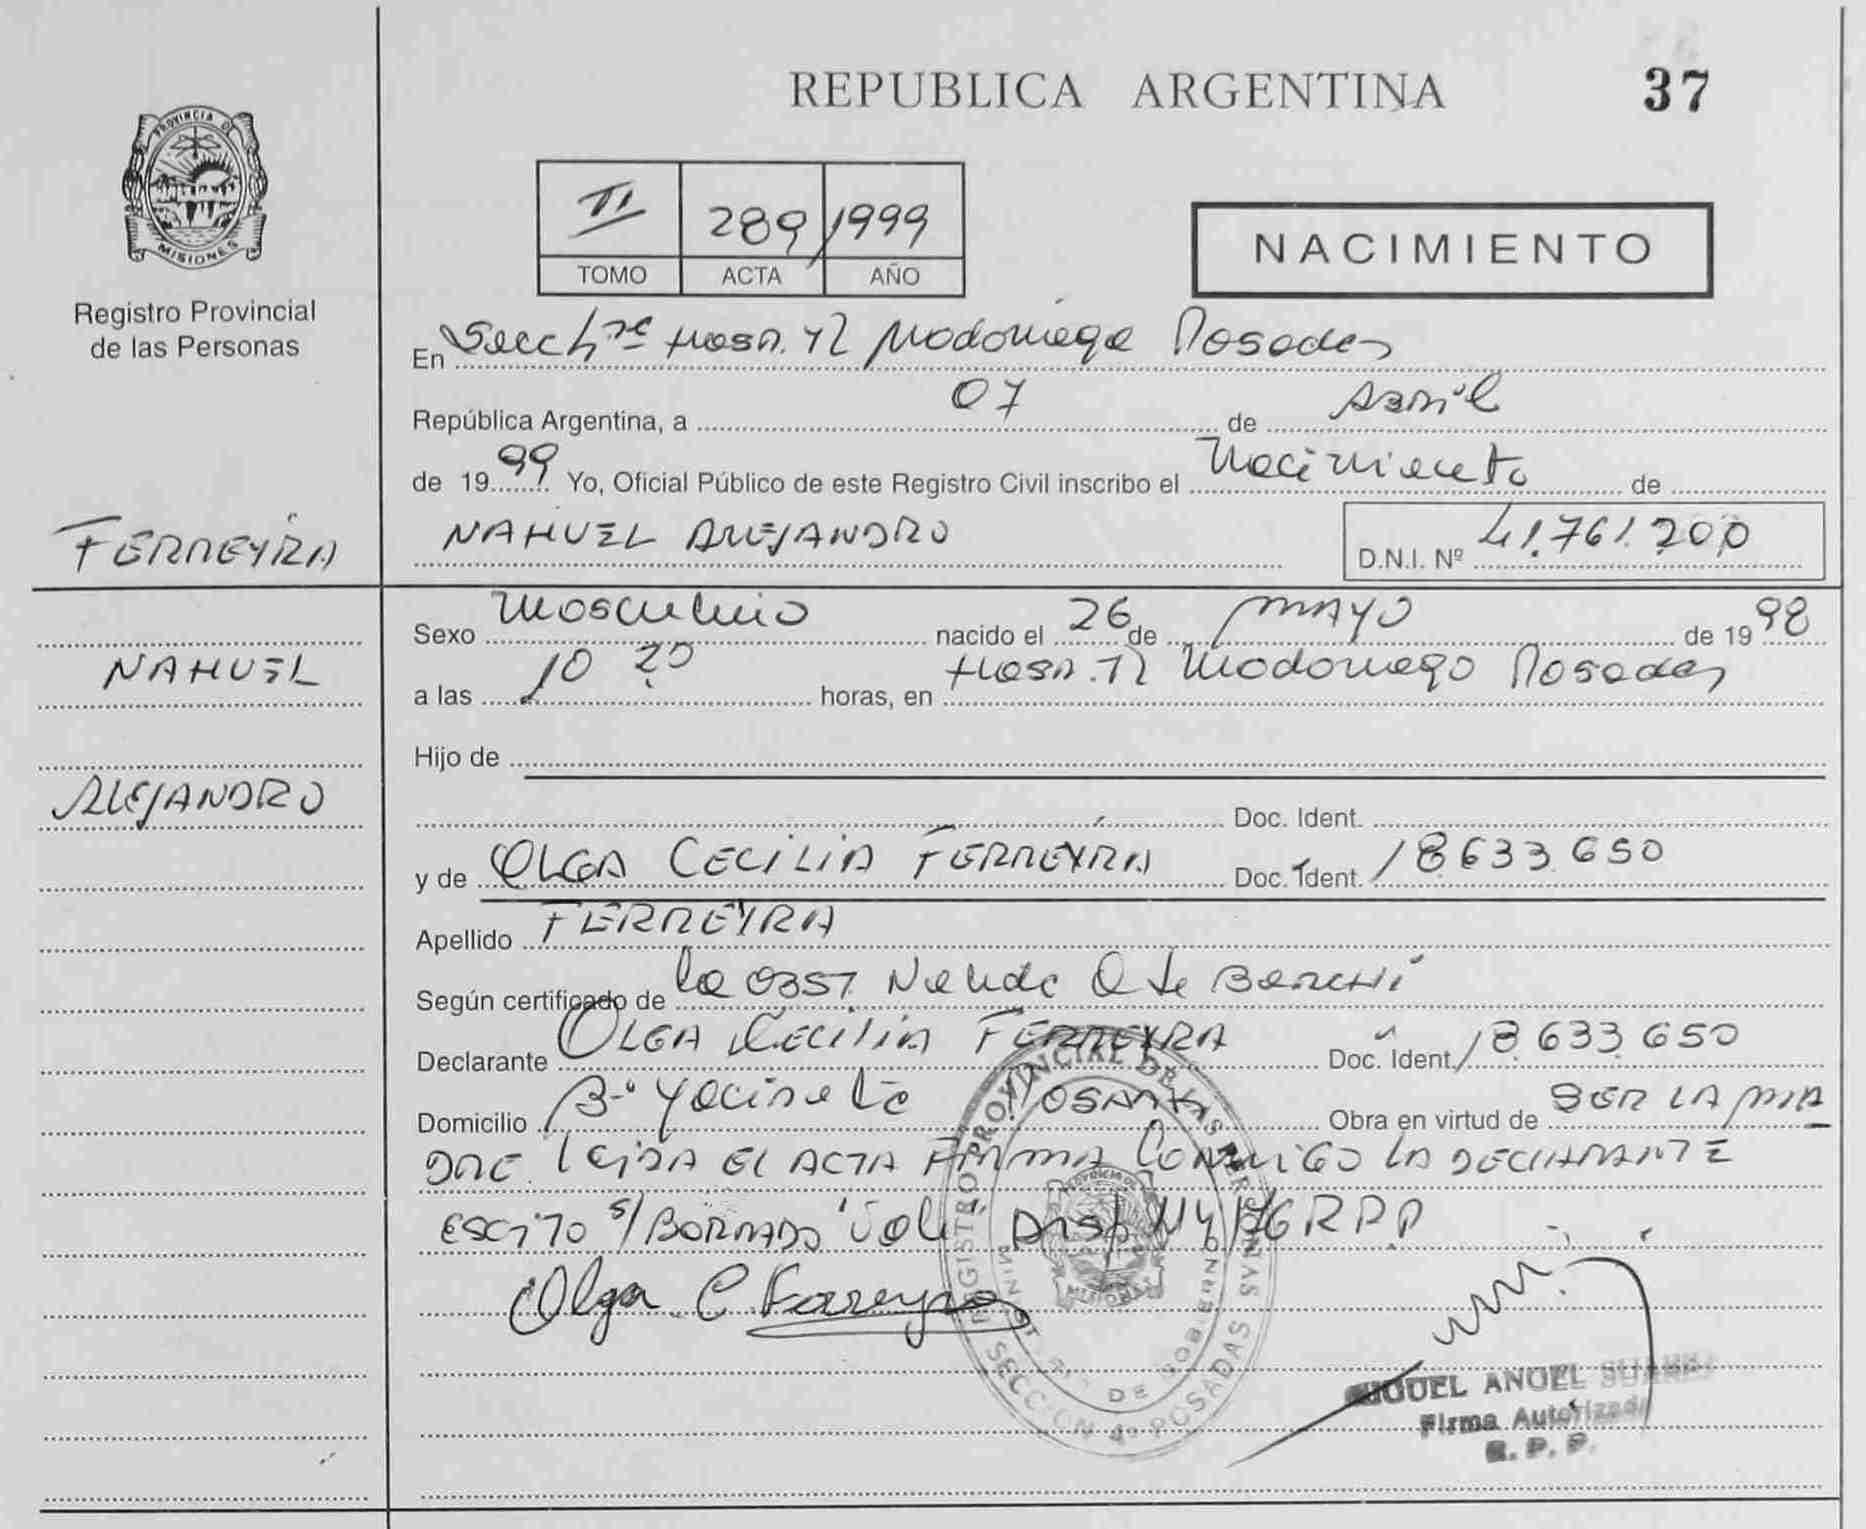 REPUBLICA ARGENTINA
37
PROVINCIA DE
MISIONES
Registro Provincial
de las Personas
II 289 1999
TOMO ACTA AÑO
NACIMIENTO
En Secc Posadas
República Argentina, a 07 de Abril
de 1999 Yo, Oficial Público de este Registro Civil inscribo el Nacimiento de
FERREYRA
NAHUEL ALEJANDRO D.N.I. Nº 41.761.200
NAHUEL
ALEJANDRO
Sexo Masculino nacido el 26 de MAYO de 1998
a las 10 20 horas, en Hosp. Posadas
Hijo de
Doc. Ident.
y de OLGA CECILIA FERREYRA Doc. Ident. 18633650
Apellido FERREYRA
Según certificado de la OBST
Declarante OLGA CECILIA FERREYRA Doc. Ident. 18633650
Domicilio Bº POSADAS Obra en virtud de SER LA MA
DRE LEIDA EL ACTA FIRMA CONMIGO LA DECLARANTE
ESCRITO S/BORRADO
Olga C Ferreyra
REGISTRO PROVINCIAL DE LAS PERSONAS
MINISTERIO DE GOBIERNO
SECCION 4ª POSADAS
MIGUEL ANGEL
Firma Autorizada
R. P. P.